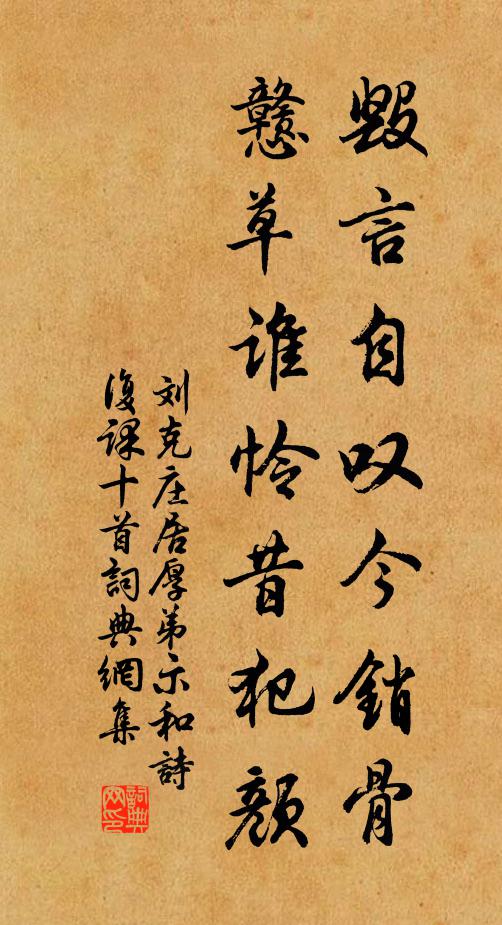 毁言自叹今销骨
戆草谁怜昔犯颜
刘克庄居厚弟示和詩
復课十首詞典網集
詞典网印